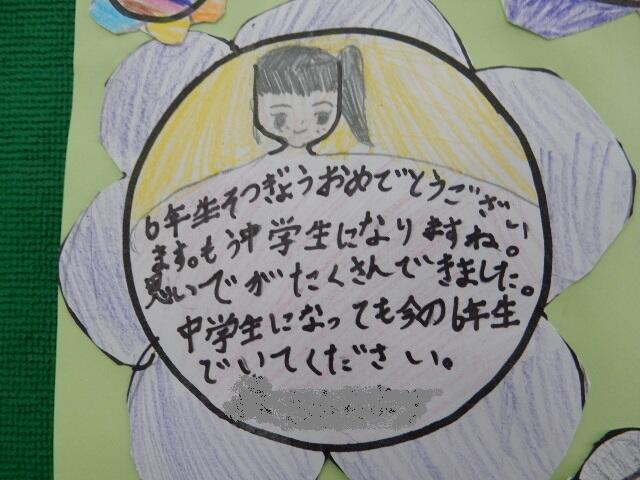 6年生そつぎょうおめでとうござい
ます。もう中学生になりますね。
思いでがたくさんできました。
中学生になっても今の6年生
でいてください。